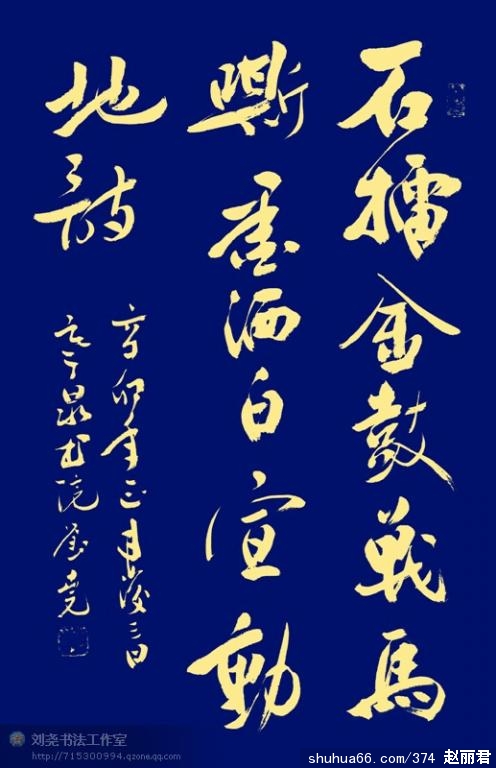 石擂金鼓戰馬
嘶墨洒白宣動
地詩
辛卯年正月後三日
書院劉堯
刘尧书法工作室
http://715300994.qzone.qq.com
shuhua66.com/374 赵丽君